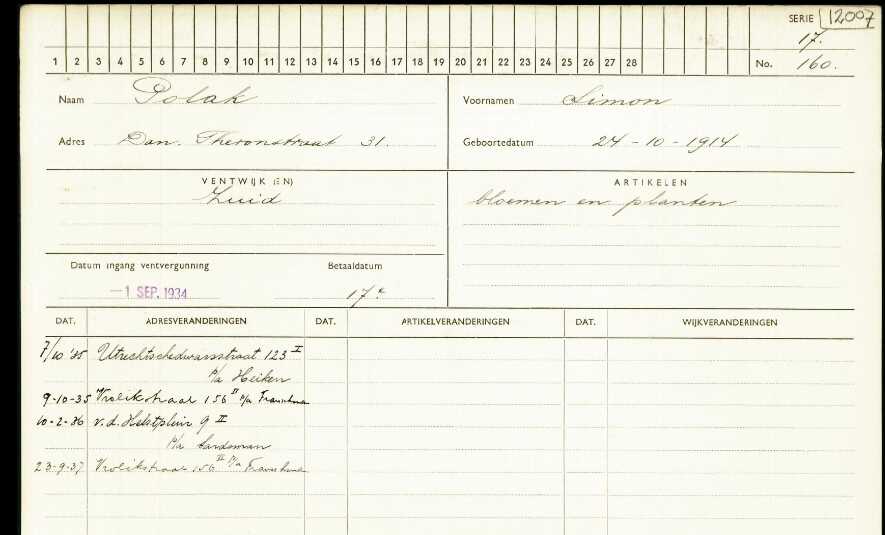 SERIE 12007
17.
1 2 3 4 5 6 7 8 9 10 11 12 13 14 15 16 17 18 19 20 21 22 23 24 25 26 27 28 No. 160.
Naam Polak Voornamen Simon
Adres Dan. Theronstraat 31. Geboortedatum 24-10-1914
VENTWIJK (EN) ARTIKELEN
Zuid bloemen en planten
Datum ingang ventvergunning Betaaldatum
-1 SEP. 1934 17e
DAT. ADRESVERANDERINGEN DAT. ARTIKELVERANDERINGEN DAT. WIJKVERANDERINGEN
7/10 '35 Utrechtschedwarsstraat 123 I
p/a Heiken
9-10-35 Vrolikstraat 156 II p/a
10-2-36 v.d. Helstplein 9 II
p/a
23-9-37 Vrolikstraat 156 II p/a